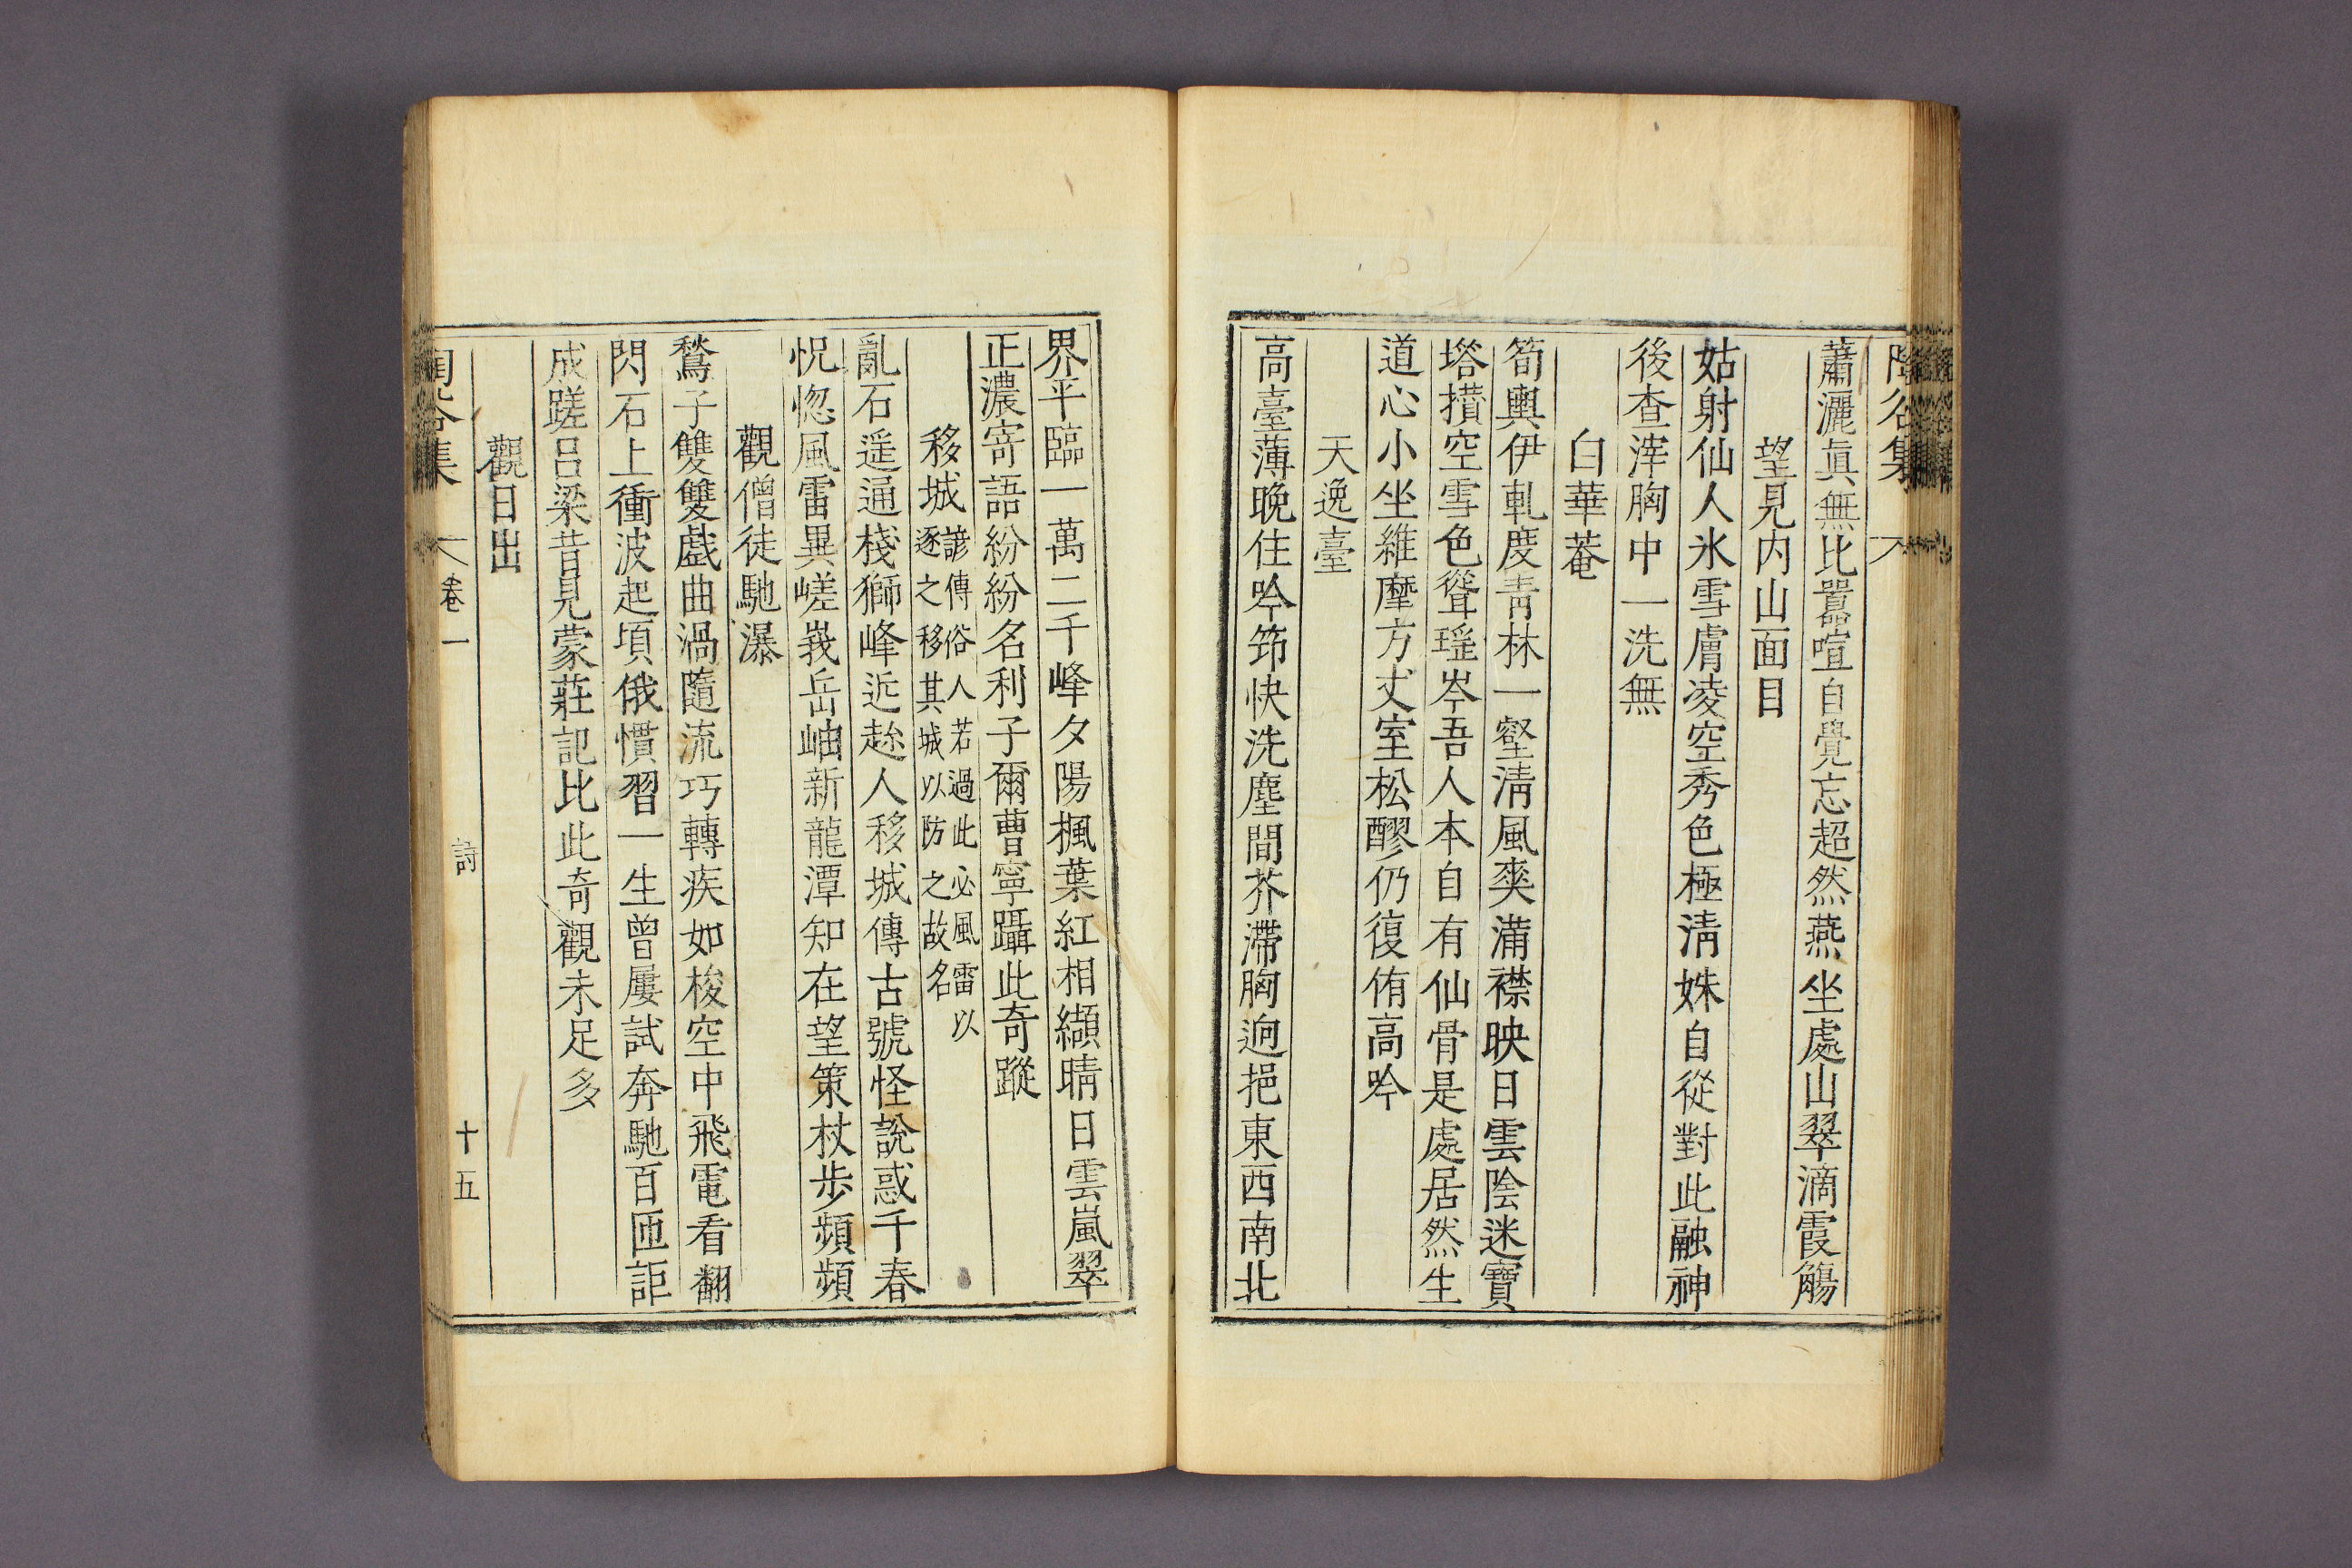 陶谷集
蕭灑眞無比囂喧自覺忘超然燕坐處山翠滴霞觴
望見内山面目
姑射仙人氷雪膚凌空秀色極淸姝自從對此融神
後查滓胸中一洗無
白華菴
筍輿伊軋度靑林一壑淸風爽滿襟映日雲陰迷寶
塔攢空雪色聳瑶岑吾人本自有仙骨是處居然生
道心小坐維摩方丈室松醪仍復侑高吟
天逸臺
高臺薄晩住吟笻快洗塵間芥滯胸逈挹東西南北
界平臨一萬二千峰夕陽楓葉紅相纈晴日雲嵐翠
正濃寄語紛紛名利子爾曹寧躡此奇蹤
移城諺傳俗人若過此必風雷以
逐之移其城以防之故名
亂石遥通棧獅峰近趂人移城傳古號怪說惑千春
怳惚風雷異嵯峩岳岫新龍潭知在望策杖步頻頻
觀僧徒馳瀑
鶖子雙雙戱曲渦隨流巧轉疾如梭空中飛電看翻
閃石上衝波起頃俄慣習一生曾屢試奔馳百匝詎
成蹉呂梁昔見蒙莊記比此奇觀未足多
觀日出
陶谷集 卷一 詩 十五